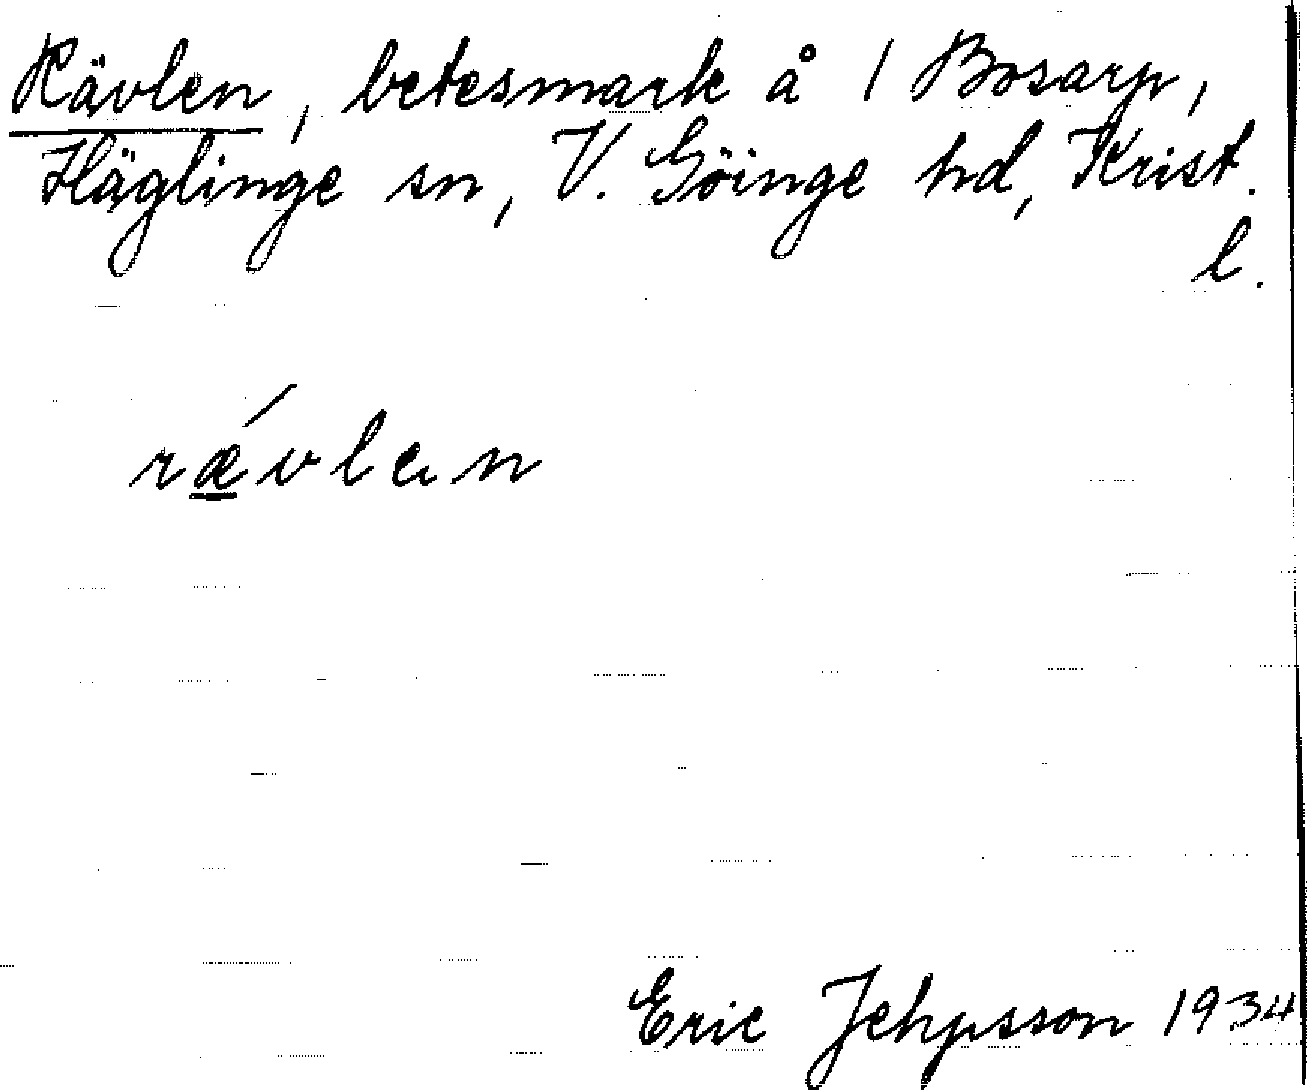 Rävlen, betesmark å 1 Bosarp,
Häglinge sn, V. Göinge hd, Krist.
l.
rǽvlen
Eric Jehpsson 1934